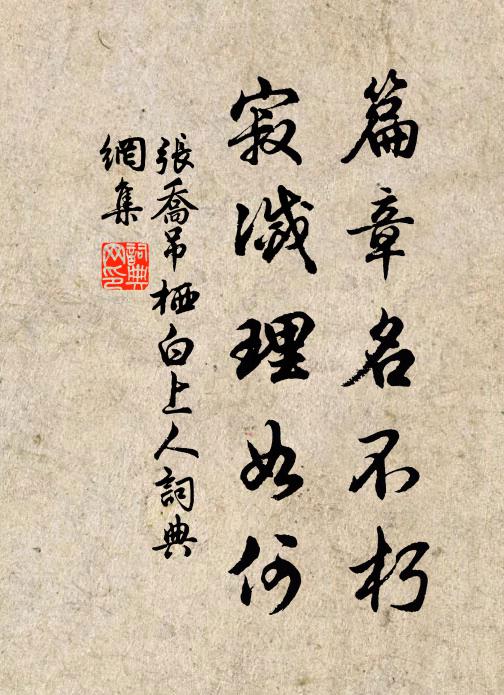 篇章名不朽
寂滅理如何
張喬吊栖白上人詞典
網集
詞典网印